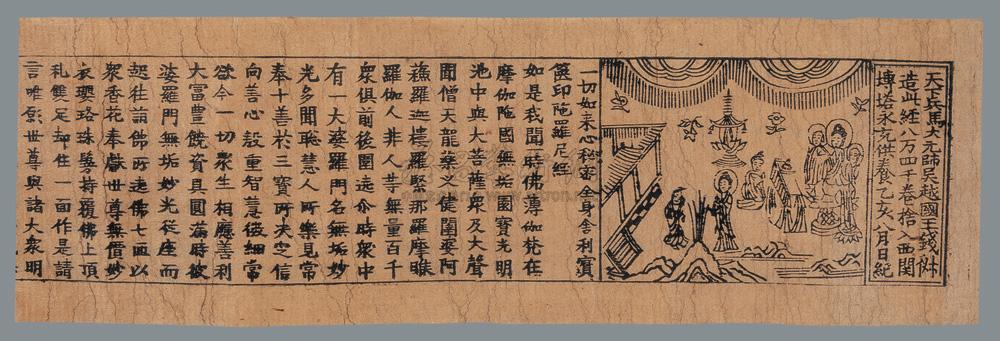 天下兵馬大元帥吳越國王錢俶
造此經八万四千卷捨入西関
塼塔永充供養乙亥八月日紀
一切如来心秘密全身舍利寶
篋印陁羅尼經
如是我聞一時佛薄伽梵在
摩伽陁國無垢園寶光明
池中與大菩薩衆及大聲
聞僧天龍藥叉健闥婆阿
蘓羅迦樓羅緊那羅摩睺
羅伽人非人等無量百千
衆俱前後圍遶尒時衆中
有一大婆羅門名無垢妙
光多聞聡慧人所樂見常
奉十善於三寶所决定信
向善心殷重智慧微細常
欲令一切衆生相應善利
大富豊饒資具圓滿時彼
婆羅門無垢妙光從座而
起往詣佛所遶佛七匝以
衆香花奉獻世尊無價妙
衣瓔珞珠鬘持覆佛上頂
礼雙足却住一面作是請
言唯願世尊與諸大衆明